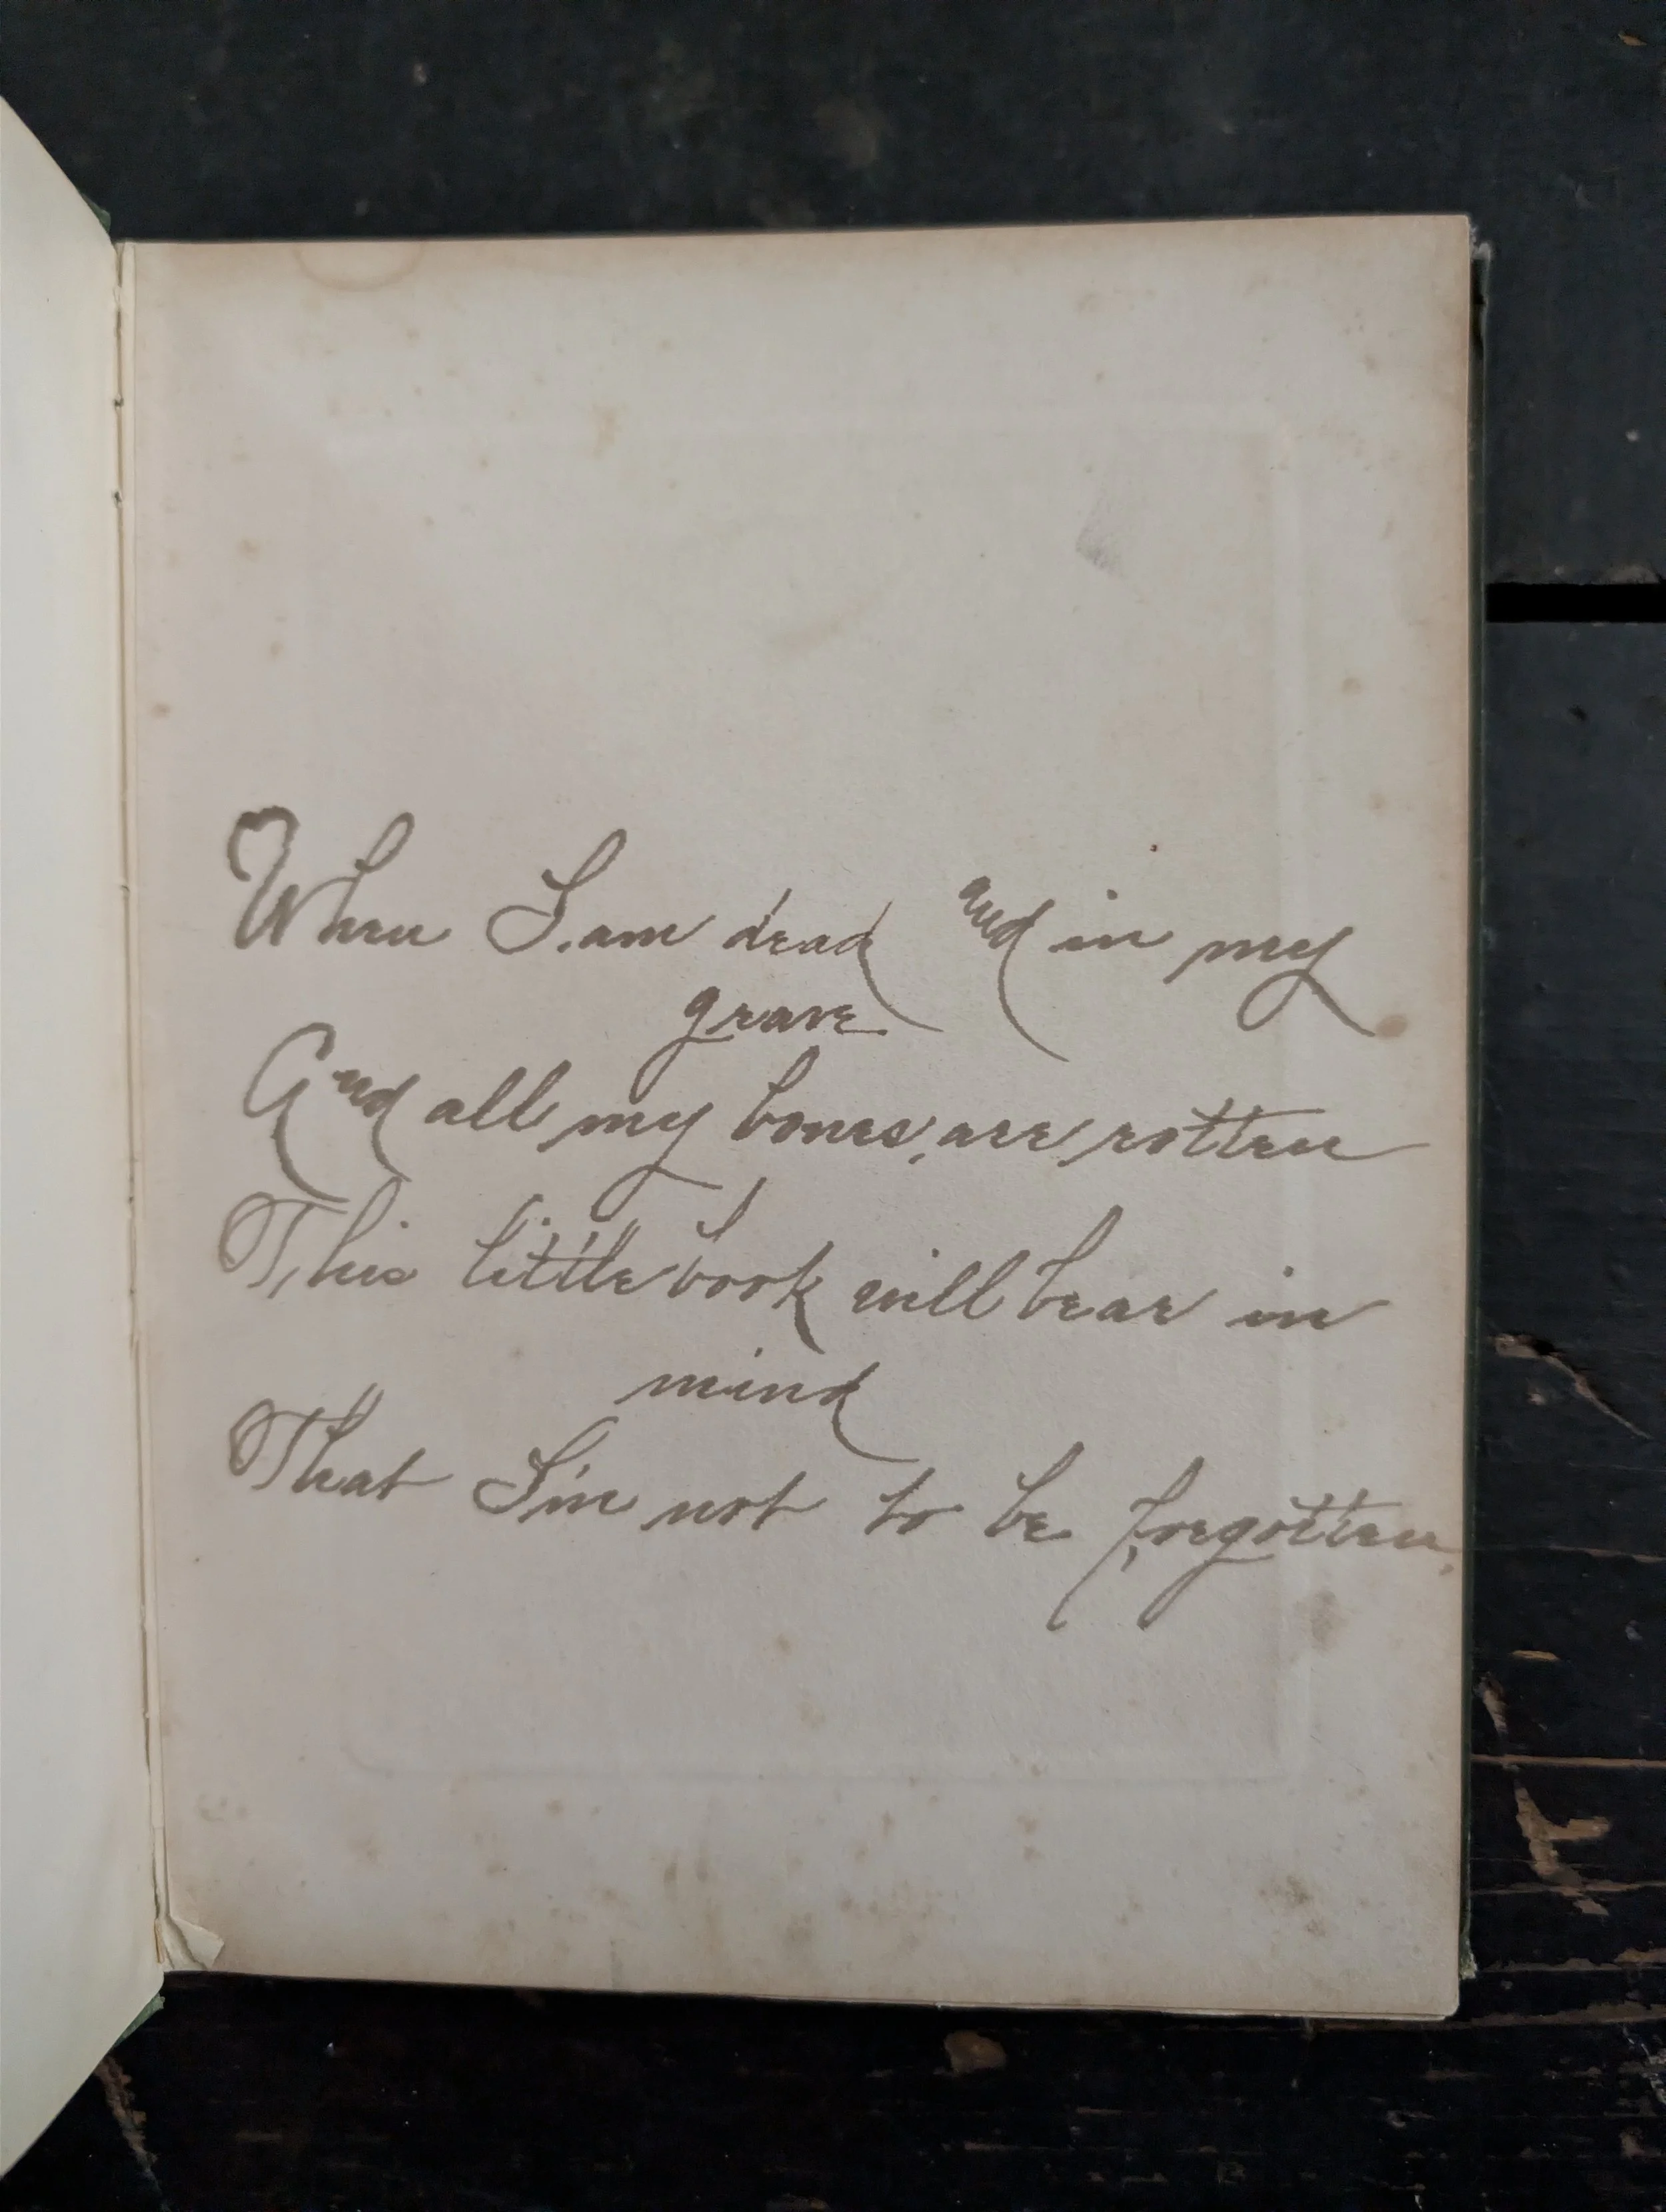 When I am dead and in my
grave
And all my bones are rotten
This little book will bear in
mind
That I'm not to be forgotten.